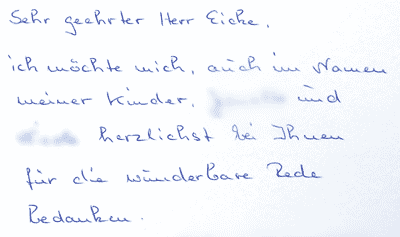 Sehr geehrter Herr Eicke,
ich möchte mich, auch im Namen
meiner Kinder, und
herzlichst bei Ihnen
für die wunderbare Rede
bedanken.